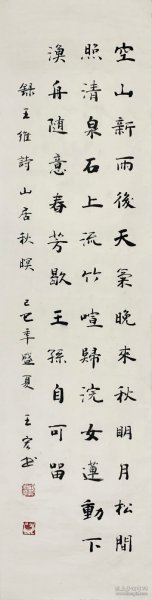 空山新雨後天氣晚來秋明月松間
照清泉石上流竹喧歸浣女蓮動下
漁舟隨意春芳歇王孫自可留
錄王維詩山居秋暝 己巳年盛夏 王宏书